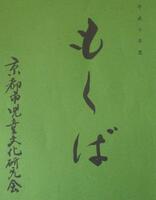 もくば
京都市児童文化研究会